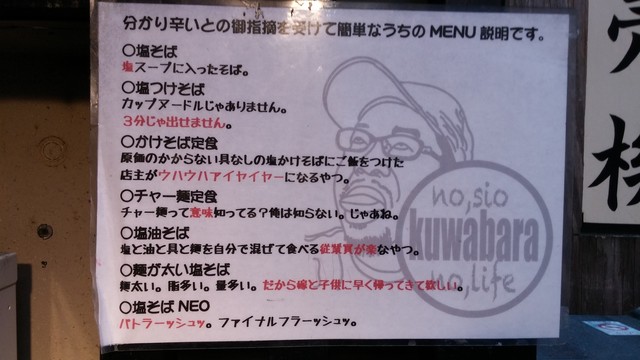 分かり辛いとの御指摘を受けて簡単なうちのMENU説明です。
〇塩そば
塩スープに入ったそば。
〇塩つけそば
カップヌードルじゃありません。
3分じゃ出せません。
〇かけそば定食
原価のかからない具なしの塩かけそばにご飯をつけた
店主がウハウハアイヤイヤーになるやつ。
〇チャー麺定食
チャー麺って意味知ってる?俺は知らない。じゃあね。
〇塩油そば
塩と油と具と麺を自分で混ぜて食べる従業員が楽なやつ。
〇麺が太い塩そば
麺太い。脂多い。量多い。だから嫁と子供に早く帰ってきて欲しい。
〇塩そばNEO
パトラーッシュッ。ファイナルフラーッシュッ。
no,sio
kuwabara
no,life